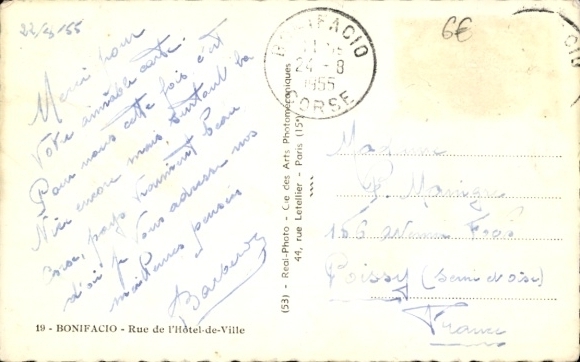 22/8/55
Merci pour
Votre aimable carte.
Pour nous cette fois c'est
Nice encore mais surtout la
Corse, pays vraiment beau
d'où je vous adresse nos
meilleures pensées
19 - BONIFACIO - Rue de l'Hôtel-de-Ville
(53) - Real-Photo - Cie des Arts Photomécaniques
44, rue Letellier - Paris (15e)
BONIFACIO
24 - 8
1955
CORSE
6€
Madame
156 Avenue Foch
Poissy (Seine et Oise)
France